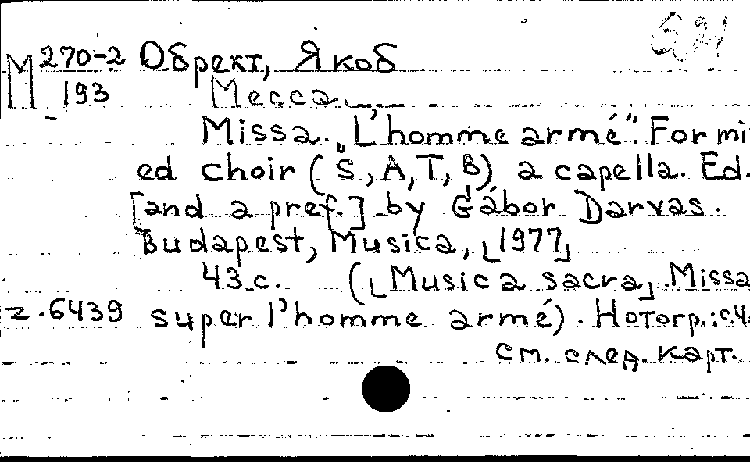 M 270-2 Обрехт, Якоб
193 Месса.
Missa "L'homme armé". For mi
ed choir (S, A, T, B) a capella. Ed.
[and a pref.] by Gábor Darvas.
Budapest, Musica, [1977]
43 с. ([Musica sacra]. Missa
z.6439 super l'homme armé). Нотогр.: с.4.
см. след. карт.